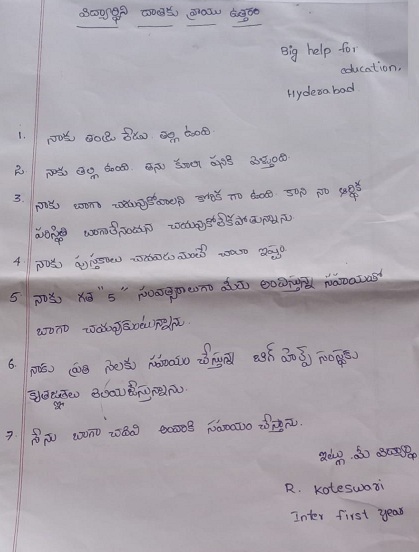 విద్యార్థిని దాతకు వ్రాయు ఉత్తరం
Big help for
education,
Hyderabad
1. నాకు తండ్రి లేడు తల్లి ఉంది.
2. నాకు తల్లి ఉంది. తను కూలి పనికి వెళ్తుంది.
3. నాకు బాగా చదువుకోవాలని కోరిక గా ఉంది కాని నా ఆర్థిక
పరిస్థితి బాగాలేనందున చదువుకోలేకపోతున్నాను.
4. నాకు పుస్తకాలు చదవడమంటే చాలా ఇష్టం.
5. నాకు గత "5" సంవత్సరాలుగా మీరు అందిస్తున్న సహాయంతో
బాగా చదువుకుంటున్నాను.
6. నాకు ప్రతి నెలకు సహాయం చేస్తున్న బిగ్ హెల్ప్ సంస్థకు
కృతజ్ఞతలు తెలియజేస్తున్నాను.
7. నేను బాగా చదివి అందరికి సహాయం చేస్తాను.
ఇట్లు మీ విద్యార్థి
R. Koteswari
Inter first year